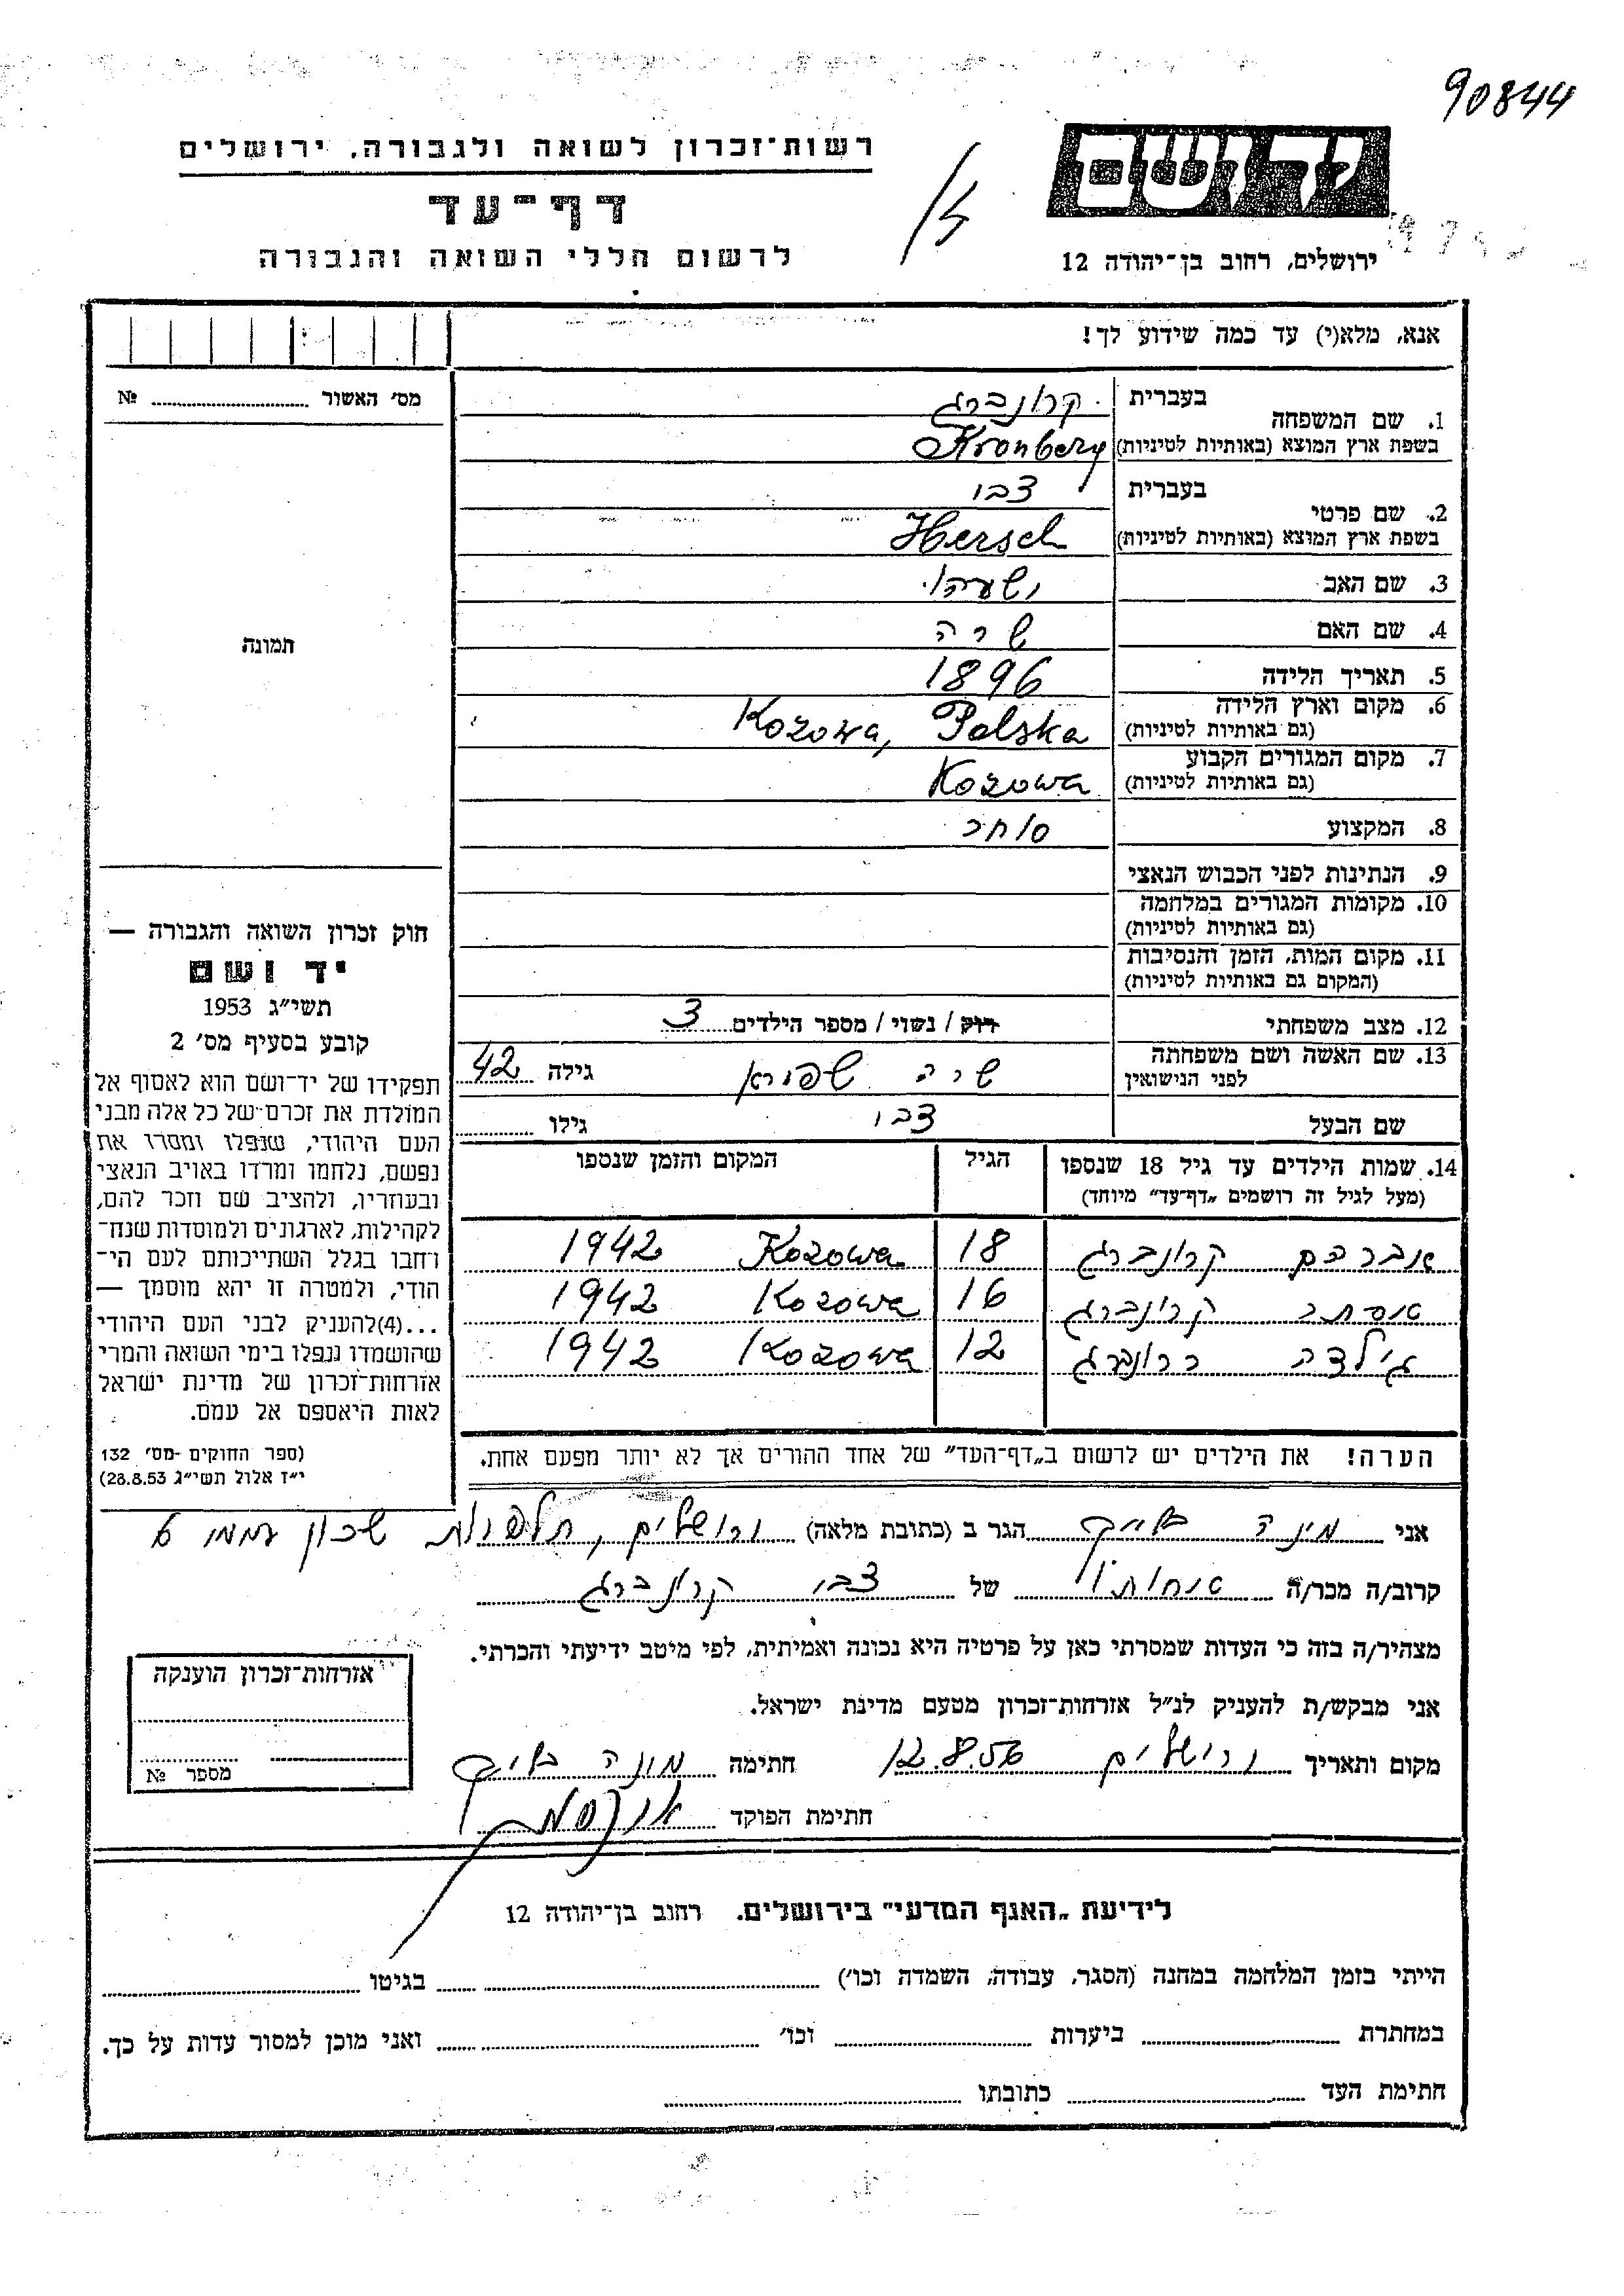 90844
רשות־זכרון לשואה ולגבורה, ירושלים
יד ושם
דף־עד
לרשום חללי השואה והגבורה
ירושלים, רחוב בן־יהודה 12
אנא, מלא(י) עד כמה שידוע לך!
מס׳ האשור ........ №
תמונה
1. שם המשפחה
בעברית קרונברג
בשפת ארץ המוצא (באותיות לטיניות) Kronberg
2. שם פרטי
בעברית צבי
בשפת ארץ המוצא (באותיות לטיניות) Hersch
3. שם האב ישעיהו
4. שם האם שרה
5. תאריך הלידה 1896
6. מקום וארץ הלידה
(גם באותיות לטיניות) Kozowa, Polska
7. מקום המגורים הקבוע
(גם באותיות לטיניות) Kozowa
8. המקצוע סוחר
9. הנתינות לפני הכבוש הנאצי
10. מקומות המגורים במלחמה
(גם באותיות לטיניות)
11. מקום המות, הזמן והנסיבות
(המקום גם באותיות לטיניות)
12. מצב משפחתי רוק / נשוי / מספר הילדים 3
13. שם האשה ושם משפחתה
לפני הנישואין שרה שפירא גילה 42
שם הבעל צבי גילו ........
14. שמות הילדים עד גיל 18 שנספו
(מעל לגיל זה רושמים „דף־עד״ מיוחד)
הגיל
המקום והזמן שנספו
אברהם קרונברג 18 Kozowa 1942
אסתר קרונברג 16 Kozowa 1942
גילדה קרונברג 12 Kozowa 1942
הערה! את הילדים יש לרשום ב„דף־העד״ של אחד ההורים אך לא יותר מפעם אחת.
חוק זכרון השואה והגבורה —
יד ושם
תשי״ג 1953
קובע בסעיף מס׳ 2
תפקידו של יד־ושם הוא לאסוף אל
המולדת את זכרם של כל אלה מבני
העם היהודי, שנפלו ומסרו את
נפשם, נלחמו ומרדו באויב הנאצי
ובעוזריו, ולהציב שם וזכר להם,
לקהילות, לארגונים ולמוסדות שנח־
רחבו בגלל השתייכותם לעם הי־
הודי, ולמטרה זו יהא מוסמך —
...(4)להעניק לבני העם היהודי
שהושמדו ונפלו בימי השואה והמרי
אזרחות־זכרון של מדינת ישראל
לאות היאספם אל עמם.
(ספר החוקים מס׳ 132
י״ז אלול תשי״ג 28.8.53)
אני הגר ב (כתובת מלאה) ירושלים, תלפיות שכון עממי
קרוב/ה מכר/ה אחותו של צבי קרונברג
מצהיר/ה בזה כי העדות שמסרתי כאן על פרטיה היא נכונה ואמיתית, לפי מיטב ידיעתי והכרתי.
אני מבקש/ת להעניק לנ״ל אזרחות־זכרון מטעם מדינת ישראל.
מקום ותאריך ירושלים 12.8.56 חתימה
חתימת הפוקד
אזרחות־זכרון הוענקה
מספר №
לידיעת „האגף המדעי״ בירושלים, רחוב בן־יהודה 12
הייתי בזמן המלחמה במחנה (הסגר, עבודה, השמדה וכו׳) ........ בגיטו ........
במחתרת ........ ביערות ........ וכו׳ ........ ואני מוכן למסור עדות על כך.
חתימת העד ........ כתובתו ........